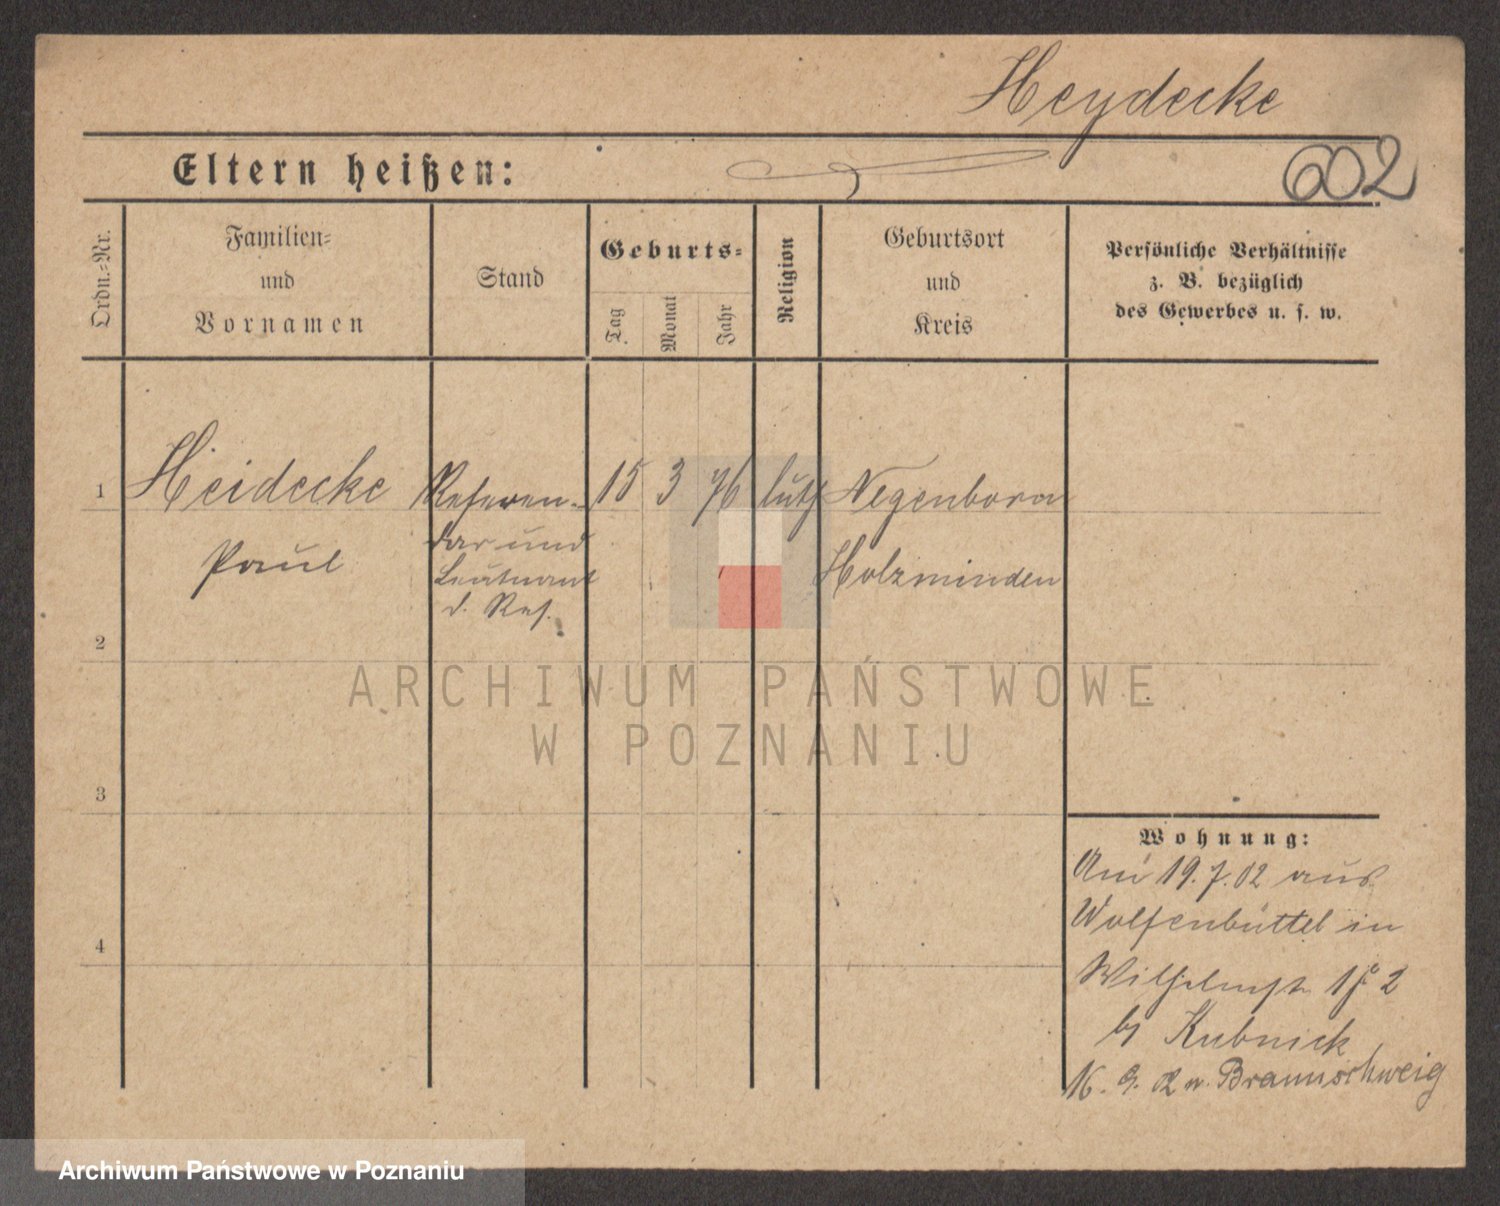 Heydecke
Eltern heißen:
602
Ordn.=Nr.
Familien=
und
Vornamen
Stand
Geburts=
Tag
Monat
Jahr
Religion
Geburtsort
und
Kreis
Persönliche Verhältnisse
z. B. bezüglich
des Gewerbes u. s. w.
1
Heidecke
Paul
Referen-
dar und
Leutnant
d. Res.
15
3
76
luth
Negenborn
Holzminden
2
ARCHIWUM PAŃSTWOWE
W POZNANIU
3
4
Wohnung:
Am 19.7.02 aus
Wolfenbüttel in
Wilhelmstr 2
by Kubnick
16. 9. 02 n. Braunschweig
Archiwum Państwowe w Poznaniu